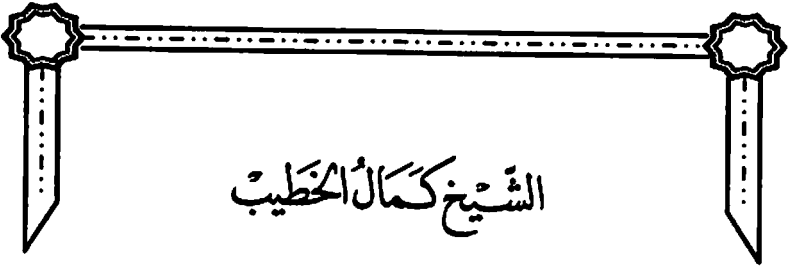 الشَّيْخ كَمَالُ الخَطِيبْ